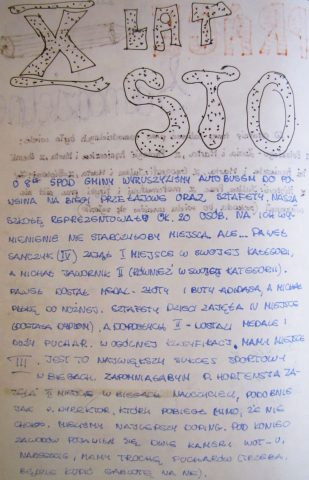 X LAT
STO
O 8⁰⁰ SPOD GMINY WYRUSZYLIŚMY AUTOBUSEM DO PO-
NA BIEGI PRZEŁAJOWE ORAZ SZTAFETY. NASZĄ
SZKOŁĘ REPREZENTOWAŁO OK. 20 OSÓB, NA ICH WY-
MIENIENIE NIE STARCZYŁOBY MIEJSCA, ALE... PAWEŁ
(IV) ZAJĄŁ I MIEJSCE W SWOJEJ KATEGORII,
A MICHAŁ JAWORNIK II (RÓWNIEŻ W SWOJEJ KATEGORII).
PAWEŁ DOSTAŁ MEDAL - ZŁOTY I BUTY ADIDASA, A MICHAŁ
PIŁKĘ DO NOŻNEJ. SZTAFETY DZIECI ZAJĘŁA IV MIEJSCE
(DOSTAŁA DYPLOM), A DOROSŁYCH II - DOSTALI MEDALE I
DUŻY PUCHAR. W OGÓLNEJ KLASYFIKACJI MAMY MIEJSCE
III. JEST TO NAJWIĘKSZY SUKCES SPORTOWY
W BIEGACH. ZAPOMNIAŁABYM P. HORTENSJA ZA-
JĘŁA II MIEJSCE W BIEGACH NAUCZYCIELI, PODOBNIE
JAK P. DYREKTOR, KTÓRY POBIEGŁ MIMO, ŻE NIE
CHCIAŁ. MIELIŚMY NAJLEPSZY DOPING. POD KONIEC
ZAWODÓW POJAWIŁA SIĘ DWIE KAMERY WOT-U,
NARESZCIE, MAMY TROCHĘ PUCHARÓW (TRZEBA
BĘDZIE KUPIĆ GABLOTĘ NA NIE).